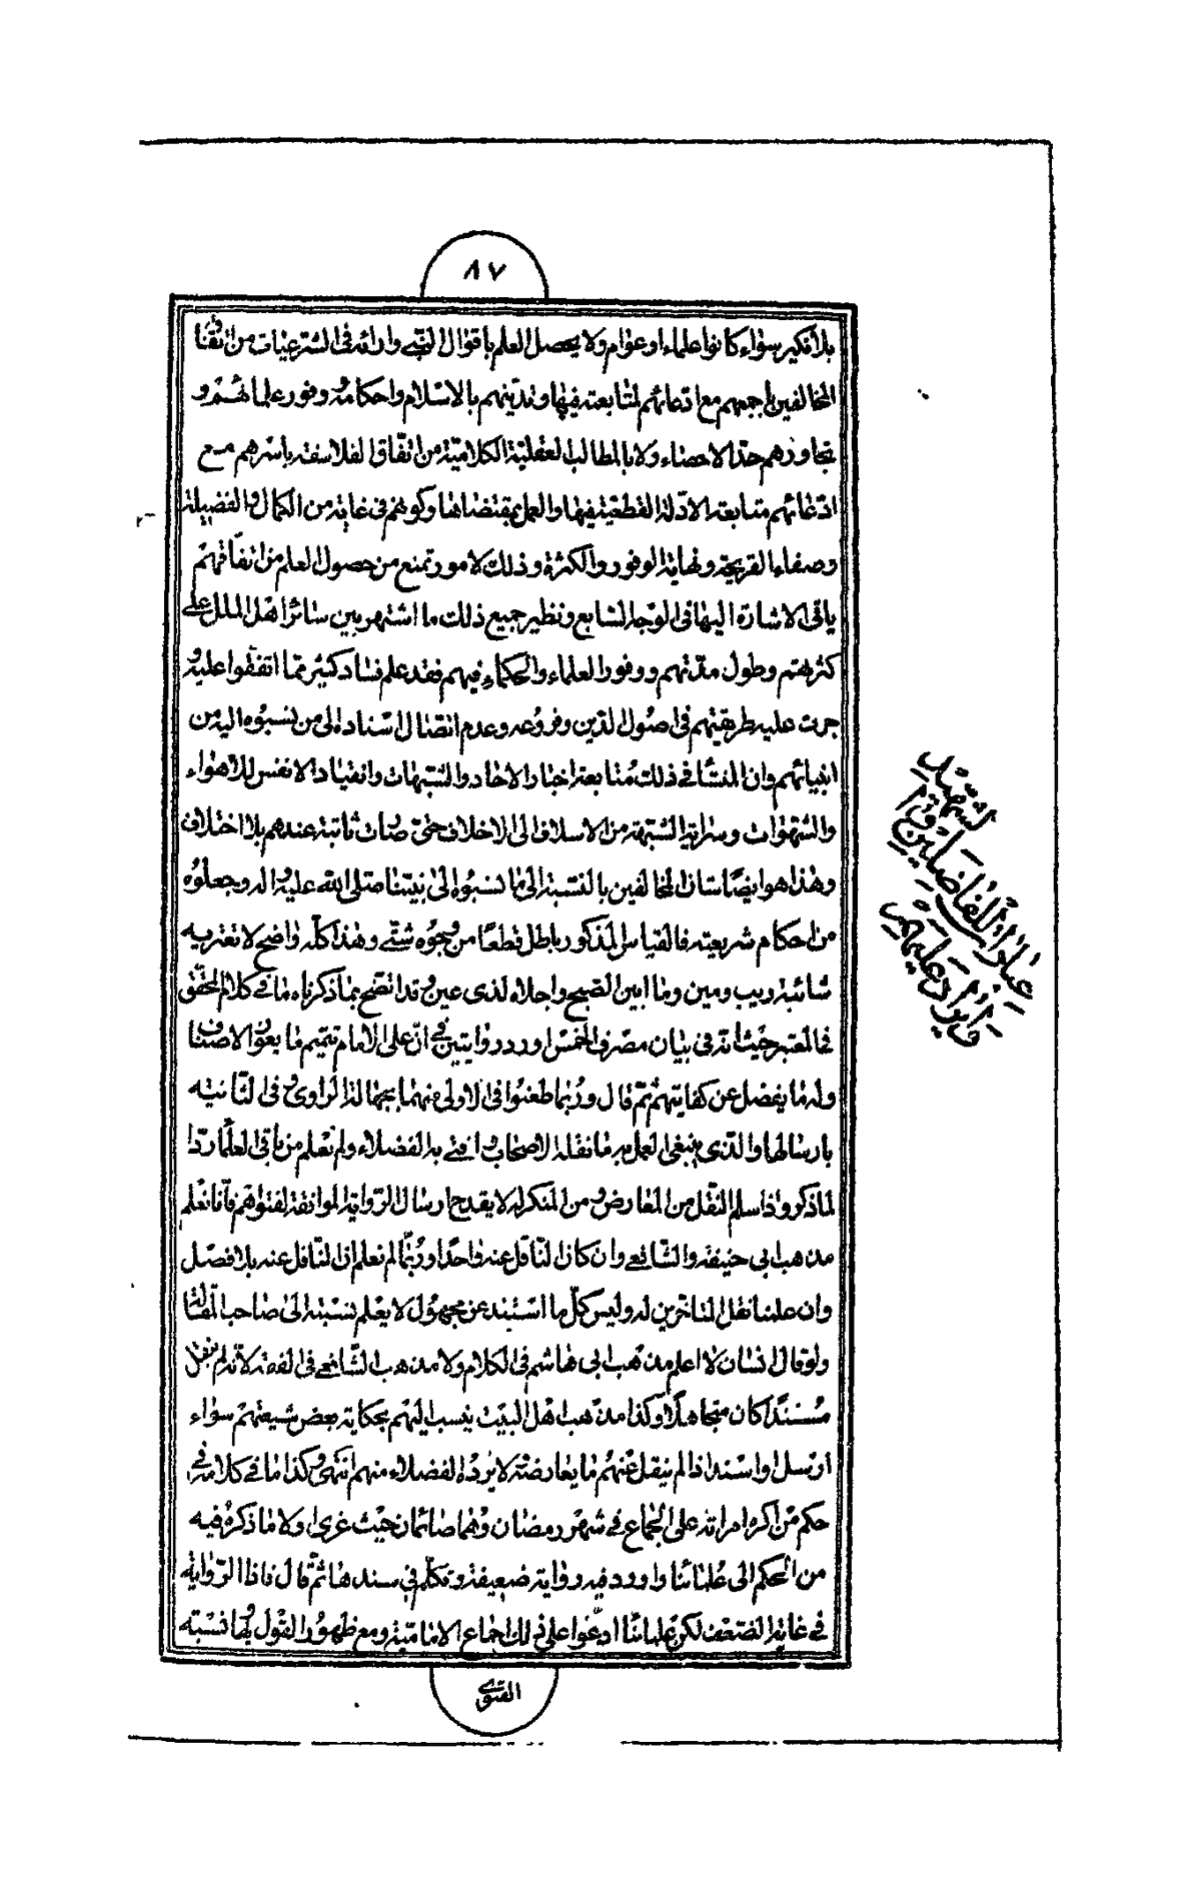 ٨٧
بلا نكير سواء كانوا علماء او عوام ولا يحصل العلم باقوال النبي وارائه في الشرعيات من اتفاق
المخالفين باجمعهم مع ادعائهم لمتابعته فيها وتدينهم بالاسلام واحكامه ووفور علمائهم و
تجاوزهم حد الاحصاء ولا بالمطالب العقلية الكلامية من اتفاق الفلاسفة باسرهم مع
ادعائهم متابعة الادلة القطعية فيها والعمل بمقتضاها وكونهم في غاية من الكمال والفضيلة
وصفاء القريحة ونهاية الوفور والكثرة وذلك لامور تمنع من حصول العلم من اتفاقهم
ياتي الاشارة اليها في الوجه السابع ونظير جميع ذلك ما اشتهر بين سائر اهل الملل على
كثرتهم وطول مدتهم ووفور العلماء والحكماء فيهم فقد علم فساد كثير مما اتفقوا عليه و
جرت عليه طريقتهم في اصول الدين وفروعه وعدم اتصال اسناده الى من نسبوه اليه من
انبيائهم وان المنشأ في ذلك متابعة اخبار الاحاد والشبهات وانقياد الانفس للاهواء
والشهوات وسراية الشبهة من الاسلاف الى الاخلاف حتى صارت ثابتة عندهم بلا اختلاف
وهذا هو ايضا شان المخالفين بالنسبة الى ما نسبوه الى نبينا صلى الله عليه واله وجعلوه
من احكام شريعته فالقياس المذكور باطل قطعا من وجوه شتى وهذا كله واضح لا تعتريه
شائبة ريب ومين وما ابين الصبح واجلاه لذي عين وقد اتضح بما ذكرناه ما في كلام المحقق
في المعتبر حيث انه في بيان مصرف الخمس اورد روايتين في ان على الامام تتميم ما يعوز الاصناف
وله ما يفضل عن كفايتهم ثم قال وربما طعنوا في الاولى منهما بجهالة الراوي وفي الثانية
بارسالها والذي ينبغي العمل به ما نقله الاصحاب وافتى به الفضلاء ولم نعلم من باقي العلماء ردا
لما ذكروا اذا سلم النقل من المعارض ومن المنكر لا يقدح ارسال الرواية الموافقة لفتواهم فانا نعلم
مذهب ابي حنيفة والشافعي وان كان الناقل عنه واحدا وربما لم نعلم ان الناقل عنه بلا فصل
وان علمنا نقل المتاخرين له وليس كل ما اسند عن مجهول لا يعلم نسبته الى صاحب المقالة
ولو قال انسان لا اعلم مذهب ابي هاشم في الكلام ولا مذهب الشافعي في الفقه لانه لم ينقل
مسندا كان متجاهلا وكذا مذهب اهل البيت ينسب اليهم بحكاية بعض شيعتهم سواء
ارسل او اسند اذا لم ينقل عنهم ما يعارضه ولا يرده الفضلاء منهم انتهى وكذا ما في كلامه في
حكم من اكره امراته على الجماع في شهر رمضان وهما صائمان حيث عزى اولا ما ذكره فيه
من الحكم الى علمائنا واورد فيه رواية ضعيفة وتكلم في سندها ثم قال فاذا الرواية
في غاية الضعف لكن علمائنا ادعوا على ذلك اجماع الامامية ومع ظهور القول بها نسبة
الفتوى
عبارات الفاضلين والشهيد
وايراد عليهم